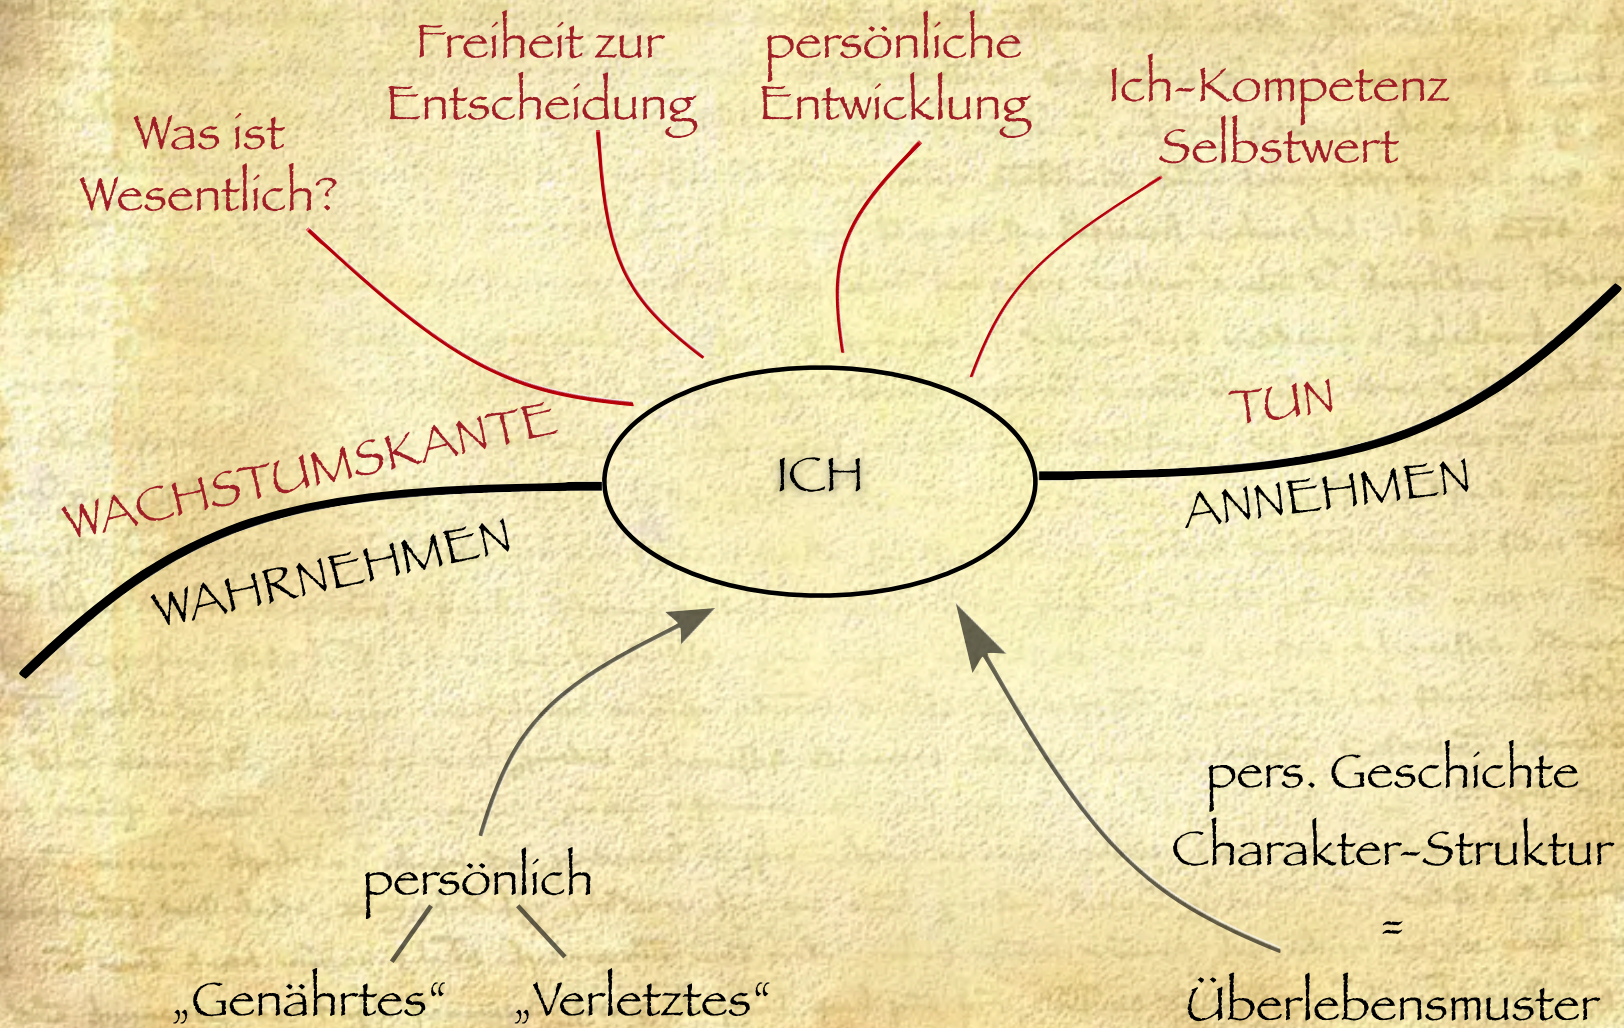 Freiheit zur
Entscheidung
persönliche
Entwicklung
Ich-Kompetenz
Selbstwert
Was ist
Wesentlich?
WACHSTUMSKANTE
WAHRNEHMEN
ICH
TUN
ANNEHMEN
persönlich
„Genährtes“
„Verletztes“
pers. Geschichte
Charakter-Struktur
=
Überlebensmuster